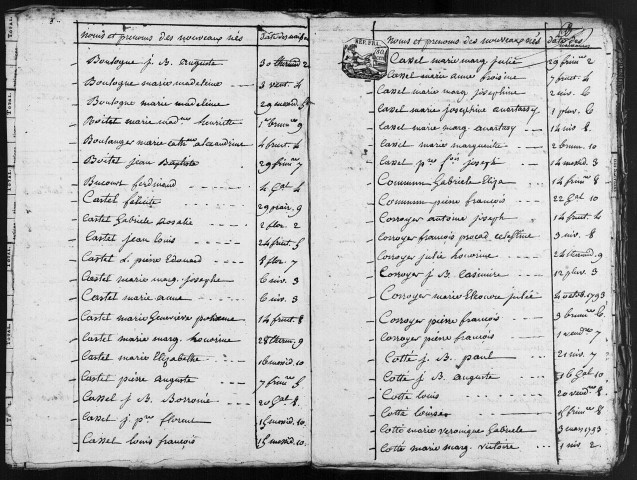 noms et prenoms des nouveaux nés
Boulogne j. B. auguste 30 therm. 2
Boulogne marie madeleine 3 vent. 4
Boulogne marie madeleine 29 messid.
Boitel marie mad. henriette 1er brum. 9
Boulanger marie cath. alexandrine 4 fruct. 4
Boitel jean Baptiste 29 frim. 7
Bucourt ferdinand 4 Gal 4
Castel félicité 29 prair. 9
Castel Gabriele Rosalie 2 flor. 2
Castel jean louis 24 fruct. 5
Castel L. pierre Edouard 8 flor. 7
Castel marie marg. josephe 6 niv. 3
Castel marie anne 6 niv. 3
Castel marie Geneviève 14 fruct. 8
Castel marie marg. honorine 28 therm. 9
Castel marie Elizabethe 16 messid. 10
Castel pierre auguste 7 frim. 6
Cassel j. B. Boromé 20 Gal 8
Cassel j. pre florent 15 messid. 10
Cassel louis françois 15 messid. 10
noms et prenoms des nouveaux nés date des naissances
Cassel marie marg. julie 29 frim. 2
Cassel marie anne 7 fruct. 4
Cassel marie marg. josephine 2 niv. 6
Cassel marie josephine 1 pluv. 6
Cassel marie marg. 14 niv. 8
Cassel marie marguerite 2 brum. 10
Cassel pre fois joseph 14 messid. 3
Commun Gabriele Eliza 14 frim. 8
Commun pierre françois 22 Gal 10
Corroyer antoine joseph 14 fruct. 4
Corroyer françois Celestine 3 niv. 8
Corroyer julie honorine 24 therm. 9
Corroyer j. B. Casimire 12 pluv. 3
Corroyer marie Eleonore julie 4 octob. 1793
Corroyer pierre françois 9 brum. 6
Corroyer pierre françois 1 vend. 7
Cotte j. B. paul 21 niv. 7
Cotte j. B. auguste 16 Gal 10
Cotte louis 20 vend. 8
Cotte louise 15 frim. 8
Cotte marie veronique Gabriele 3 mars 1793
Cotte marie marg. victoire 1 niv. 2